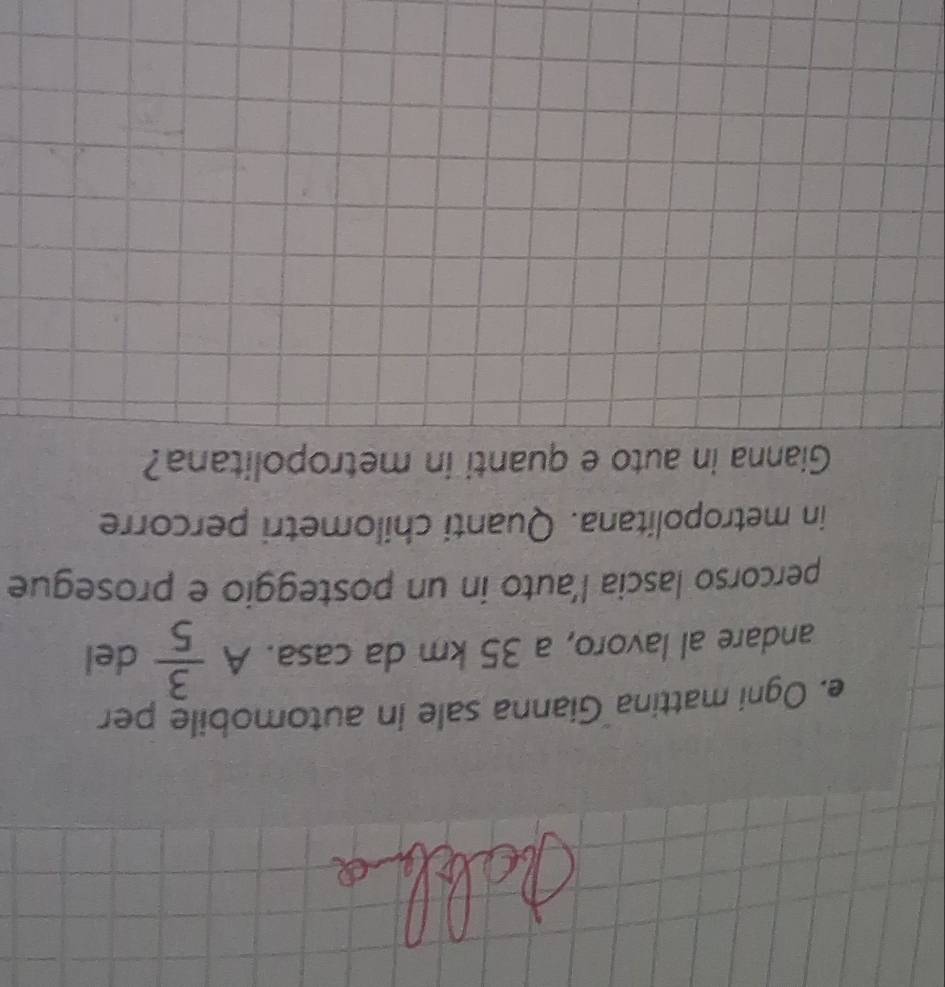 e. Ogni mattina Gianna sale in automobile per
andare al lavoro, a 35 km da casa. A 3/5 del
percorso lascia l'auto in un posteggio e prosegue
in metropolitana. Quanti chilometri percorre
Gianna in auto e quanti in metropolitana?